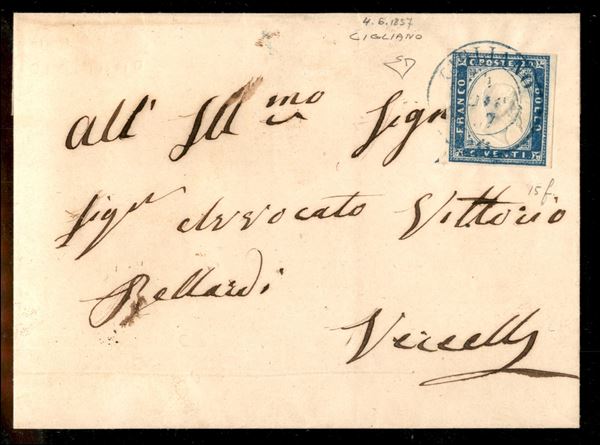 4.6.1857
CIGLIANO
C. POSTE. 20
FRANCO
BOLLO
C. VENTI.
CIGLIANO
all' Ill.mo Sign
Sigr Avvocato Vittorio
Bellardi
Vercelli
15 f.